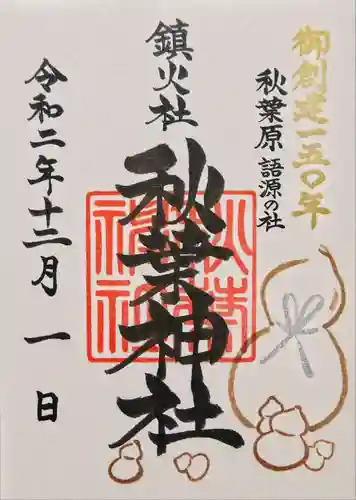 御創建一五〇年
秋葉原 語源の社
鎮火社
秋葉神社
令和二年十二月 一 日